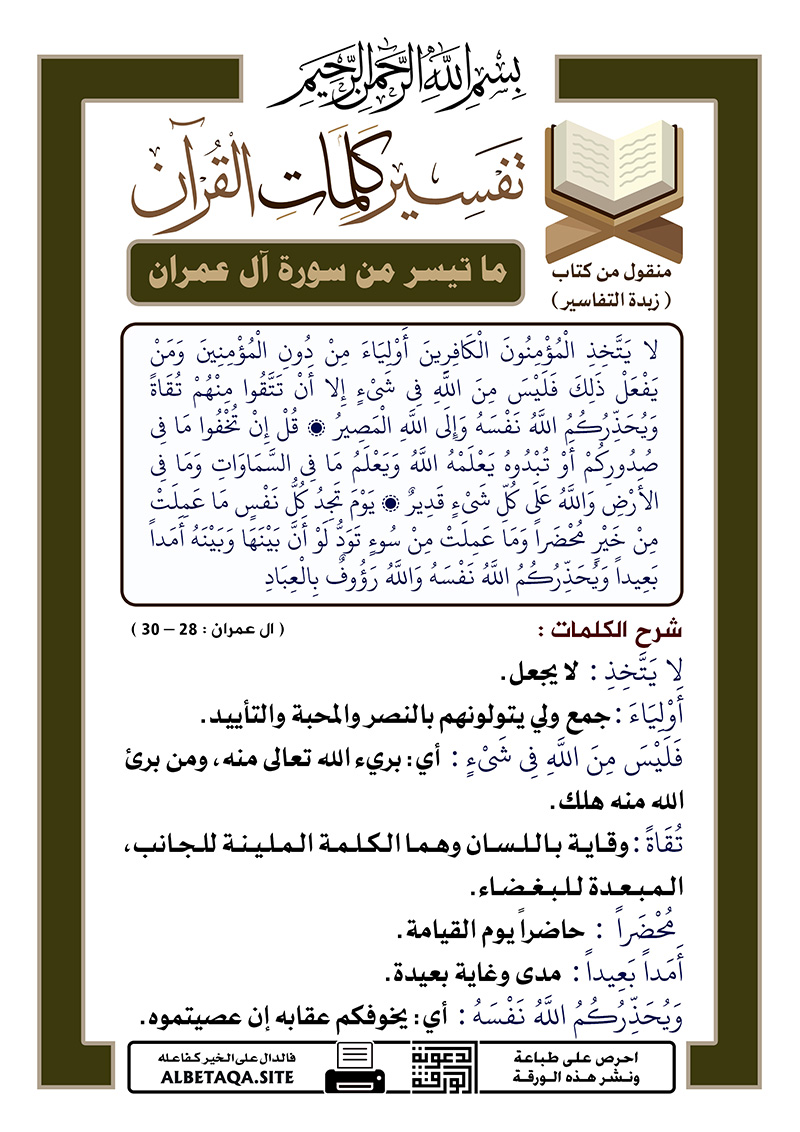 بِسْمِ اللَّهِ الرَّحْمَنِ الرَّحِيمِ
تَفْسِير كَلِمَاتِ الْقُرْآن
منقول من كتاب
( زبدة التفاسير )
ما تيسر من سورة آل عمران
لا يَتَّخِذِ الْمُؤْمِنُونَ الْكَافِرِينَ أَوْلِيَاءَ مِنْ دُونِ الْمُؤْمِنِينَ وَمَنْ
يَفْعَلْ ذَلِكَ فَلَيْسَ مِنَ اللَّهِ فِي شَيْءٍ إِلا أَنْ تَتَّقُوا مِنْهُمْ تُقَاةً
وَيُحَذِّرُكُمُ اللَّهُ نَفْسَهُ وَإِلَى اللَّهِ الْمَصِيرُ ۞ قُلْ إِنْ تُخْفُوا مَا فِي
صُدُورِكُمْ أَوْ تُبْدُوهُ يَعْلَمْهُ اللَّهُ وَيَعْلَمُ مَا فِي السَّمَاوَاتِ وَمَا فِي
الأَرْضِ وَاللَّهُ عَلَى كُلِّ شَيْءٍ قَدِيرٌ ۞ يَوْمَ تَجِدُ كُلُّ نَفْسٍ مَا عَمِلَتْ
مِنْ خَيْرٍ مُحْضَراً وَمَا عَمِلَتْ مِنْ سُوءٍ تَوَدُّ لَوْ أَنَّ بَيْنَهَا وَبَيْنَهُ أَمَداً
بَعِيداً وَيُحَذِّرُكُمُ اللَّهُ نَفْسَهُ وَاللَّهُ رَؤُوفٌ بِالْعِبَادِ
شرح الكلمات :
( ال عمران : 28 – 30 )
لا يَتَّخِذِ : لا يجعل.
أَوْلِيَاءَ : جمع ولي يتولونهم بالنصر والمحبة والتأييد.
فَلَيْسَ مِنَ اللَّهِ فِي شَيْءٍ : أي: بريء الله تعالى منه، ومن برئ
الله منه هلك.
تُقَاةً : وقاية باللسان وهما الكلمة الملينة للجانب،
المبعدة للبغضاء.
مُحْضَراً : حاضراً يوم القيامة.
أَمَداً بَعِيداً : مدى وغاية بعيدة.
وَيُحَذِّرُكُمُ اللَّهُ نَفْسَهُ : أي: يخوفكم عقابه إن عصيتموه.
احرص على طباعة
ونشر هذه الورقة
الورقة الدعوية
فالدال على الخير كفاعله
ALBETAQA.SITE